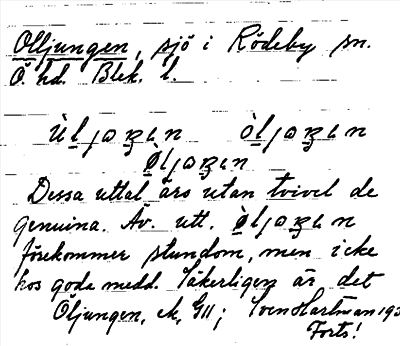 Olljungen, sjö i Rödeby sn.
Ö. hd. Blek. l.
ùljaʒɛn òljaʒɛn
ø̀ljaʒɛn
Dessa uttal äro utan tvivel de
genuina. Äv. utt. ø̀ljaʒɛn
förekommer stundom, men icke
hos goda medd. Säkerligen är det
Öljungen, GII; Sven Hartman 193
Forts!